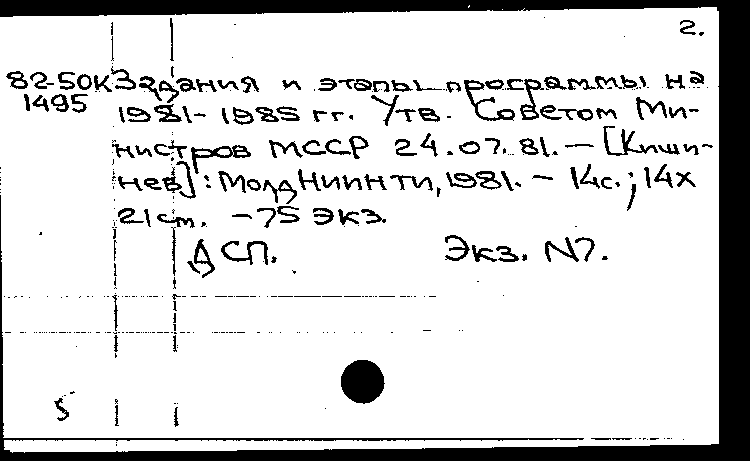 2.
82-50К Задания и этапы программы на
1495 1981-1985 гг. Утв. Советом Ми-
нистров МССР 24.07.81. — [Киши-
нев]: МолдНИИНТИ, 1981. — 14с.; 14х
21 cm. — 75 экз.
ДСП. Экз. N7.
5